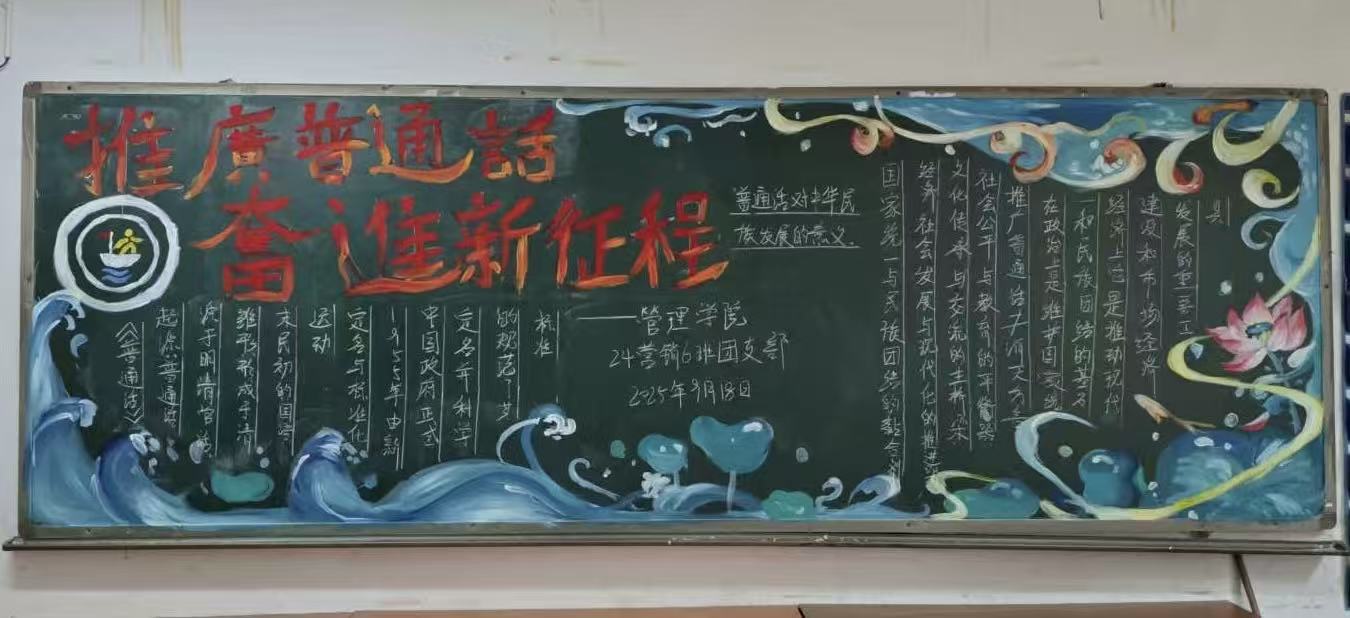 推廣普通話
奮進新征程
——管理学院
24营销6班团支部
2025年9月18日
《普通话》
起源:普通话
源于明清官话
雏形形成于清
末民初的国语
运动
定名与标准化
1955年由新
中国政府正式
定名年科学
的规范了其
标准
普通话对中华民
族发展的意义.
国家统一与民族团结的黏合剂
经济社会发展与现代化的推进器
文化传承与交流的主桥梁
社会公平与教育的平衡器
推广普通话
在政治上是维护国家统
一和民族团结的基石
经济上它是推动现代
建设和市场经济
发展的重要工
具